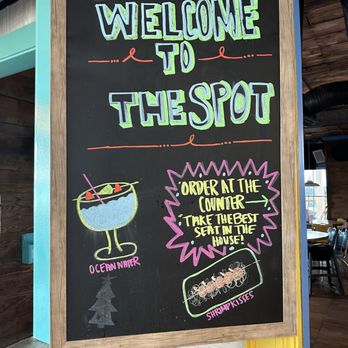 WELCOME
TO
THE SPOT
ORDER AT THE
COUNTER →
TAKE THE BEST
SEAT IN THE
HOUSE!
OCEAN WATER
SHRIMP KISSES